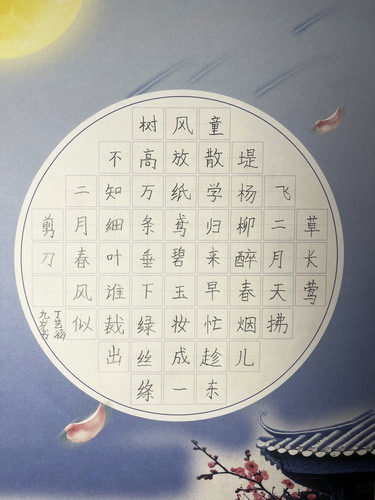 草长莺
飞二月天拂
堤杨柳醉春烟儿
童散学归来早忙趁东
风放纸鸢碧玉妆成一
树高万条垂下绿丝绦
不知细叶谁裁出
二月春风似
剪刀